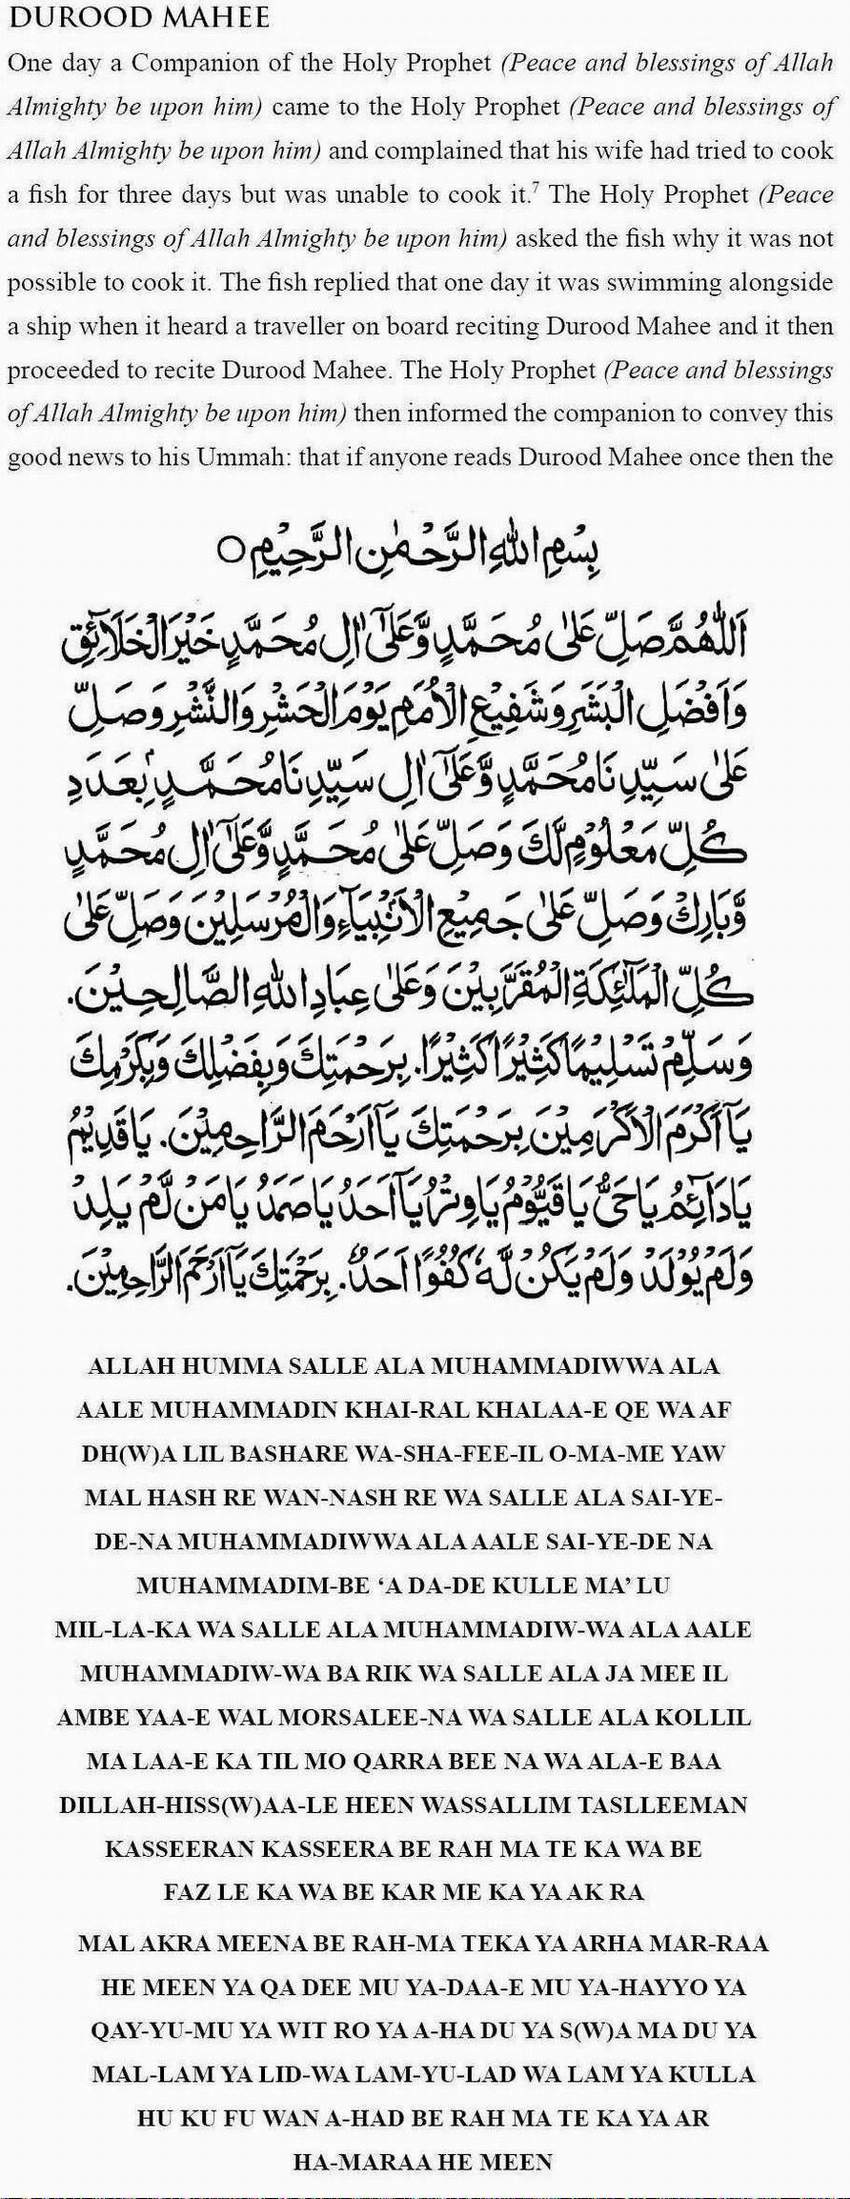 DUROOD MAHEE
One day a Companion of the Holy Prophet (Peace and blessings of Allah
Almighty be upon him) came to the Holy Prophet (Peace and blessings of
Allah Almighty be upon him) and complained that his wife had tried to cook
a fish for three days but was unable to cook it.7 The Holy Prophet (Peace
and blessings of Allah Almighty be upon him) asked the fish why it was not
possible to cook it. The fish replied that one day it was swimming alongside
a ship when it heard a traveller on board reciting Durood Mahee and it then
proceeded to recite Durood Mahee. The Holy Prophet (Peace and blessings
of Allah Almighty be upon him) then informed the companion to convey this
good news to his Ummah: that if anyone reads Durood Mahee once then the
بِسْمِ اللهِ الرَّحْمٰنِ الرَّحِيْمِ○
اَللّٰهُمَّ صَلِّ عَلٰى مُحَمَّدٍ وَّعَلٰٓى اٰلِ مُحَمَّدٍ خَيْرَ الْخَلَآئِقِ
وَاَفْضَلِ الْبَشَرِ وَشَفِيْعِ الْاُمَمِ يَوْمَ الْحَشْرِ وَالنَّشْرِ وَصَلِّ
عَلٰى سَيِّدِنَا مُحَمَّدٍ وَّعَلٰٓى اٰلِ سَيِّدِنَا مُحَمَّدٍ ۢبِعَدَدِ
كُلِّ مَعْلُوْمٍ لَّكَ وَصَلِّ عَلٰى مُحَمَّدٍ وَّعَلٰٓى اٰلِ مُحَمَّدٍ
وَّبَارِكْ وَصَلِّ عَلٰى جَمِيْعِ الْاَنْبِيَآءِ وَالْمُرْسَلِيْنَ وَصَلِّ عَلٰى
كُلِّ الْمَلٰٓئِكَةِ الْمُقَرَّبِيْنَ وَعَلٰى عِبَادِ اللهِ الصَّالِحِيْنَ.
وَسَلِّمْ تَسْلِيْمًا كَثِيْرًا كَثِيْرًا. بِرَحْمَتِكَ وَبِفَضْلِكَ وَبِكَرَمِكَ
يَآ اَكْرَمَ الْاَكْرَمِيْنَ بِرَحْمَتِكَ يَآ اَرْحَمَ الرَّاحِمِيْنَ. يَا قَدِيْمُ
يَا دَآئِمُ يَا حَيُّ يَا قَيُّوْمُ يَا وِتْرُ يَآ اَحَدُ يَا صَمَدُ يَا مَنْ لَّمْ يَلِدْ
وَلَمْ يُوْلَدْ وَلَمْ يَكُنْ لَّهٗ كُفُوًا اَحَدٌ. بِرَحْمَتِكَ يَآ اَرْحَمَ الرَّاحِمِيْنَ.
ALLAH HUMMA SALLE ALA MUHAMMADIWWA ALA
AALE MUHAMMADIN KHAI-RAL KHALAA-E QE WA AF
DH(W)A LIL BASHARE WA-SHA-FEE-IL O-MA-ME YAW
MAL HASH RE WAN-NASH RE WA SALLE ALA SAI-YE-
DE-NA MUHAMMADIWWA ALA AALE SAI-YE-DE NA
MUHAMMADIM-BE ‘A DA-DE KULLE MA’ LU
MIL-LA-KA WA SALLE ALA MUHAMMADIW-WA ALA AALE
MUHAMMADIW-WA BA RIK WA SALLE ALA JA MEE IL
AMBE YAA-E WAL MORSALEE-NA WA SALLE ALA KOLLIL
MA LAA-E KA TIL MO QARRA BEE NA WA ALA-E BAA
DILLAH-HISS(W)AA-LE HEEN WASSALLIM TASLLEEMAN
KASSEERAN KASSEERA BE RAH MA TE KA WA BE
FAZ LE KA WA BE KAR ME KA YA AK RA
MAL AKRA MEENA BE RAH-MA TEKA YA ARHA MAR-RAA
HE MEEN YA QA DEE MU YA-DAA-E MU YA-HAYYO YA
QAY-YU-MU YA WIT RO YA A-HA DU YA S(W)A MA DU YA
MAL-LAM YA LID-WA LAM-YU-LAD WA LAM YA KULLA
HU KU FU WAN A-HAD BE RAH MA TE KA YA AR
HA-MARAA HE MEEN